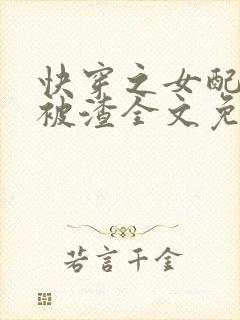 快穿之女配
被渣全文免
若言千金